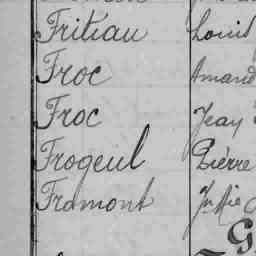 Friteau Louis
Froc Amand
Froc Jean
Frogeul Pierre
Fromont
G